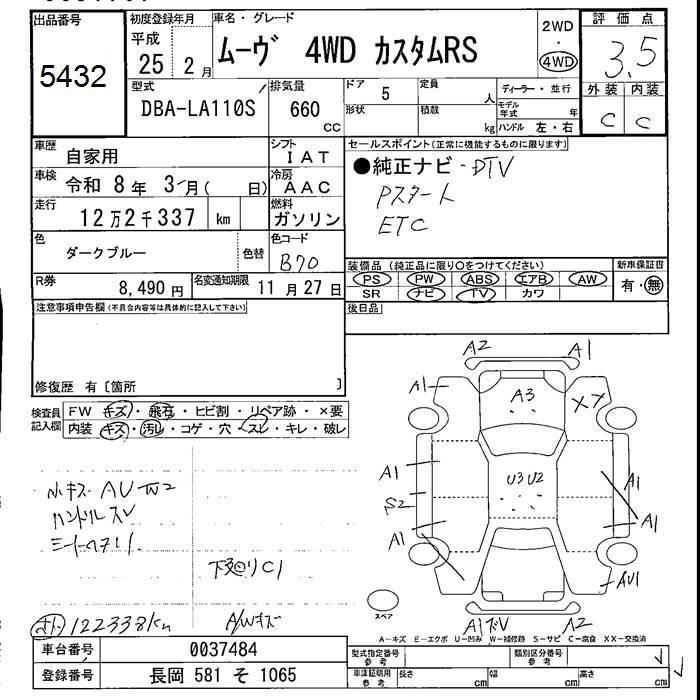 出品番号
5432
初度登録年月
平成
25 2 月
車名・グレード
ムーヴ 4WD カスタムRS
2WD
・
4WD
評価点
3.5
外装 内装
C C
型式
DBA-LA110S
排気量
660
cc
ドア 5
形状
定員
人
積載
kg
ディーラー・並行
モデル年式 年
ハンドル 左・右
車歴 自家用
シフト
IAT
車検 令和 8 年 3 月( 日)
冷房
AAC
走行
12 万 2 千 337 km
燃料
ガソリン
色
ダークブルー
色替
色コード
B70
R券
8,490 円
名変通知期限 11 月 27 日
セールスポイント(正常に機能するものに限ります)
●純正ナビ・DTV
Pスタート
ETC
装備品 (純正品に限り○をつけてください)
PS PW ABS エアB AW
SR ナビ TV カワ
新車保証書
有・無
後日品
注意事項申告欄(不具合内容等は具体的に記入して下さい)
修復歴 有〔箇所 〕
検査員記入欄
FW キズ・飛石・ヒビ割・リペア跡・×要
内装 キズ・汚レ・コゲ・穴・スレ・キレ・破レ
小キズ AU
ハンドルスレ
下廻りC1
122338km
A/Wキズ
A2 A1
A1
A3
XX
A1
S2
A1
U3 U2
A1
A1
AU1
A1 A2
スペア
A-キズ E-エクボ U-凹み W-補修跡 S-サビ C-腐食 XX-交換済
車台番号 0037484
登録番号 長岡 581 そ 1065
型式指定番号
参考
類別区分番号
参考
車庫証明用
参考
長さ cm
幅 cm
高さ cm